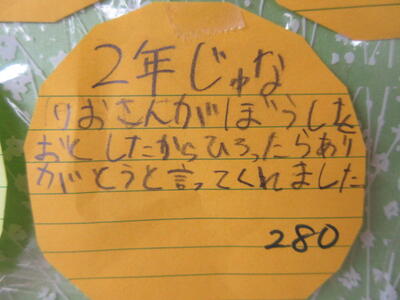 2年じゅな
りおさんがぼうしを
おとしたからひろったらあり
がとうと言ってくれました
280